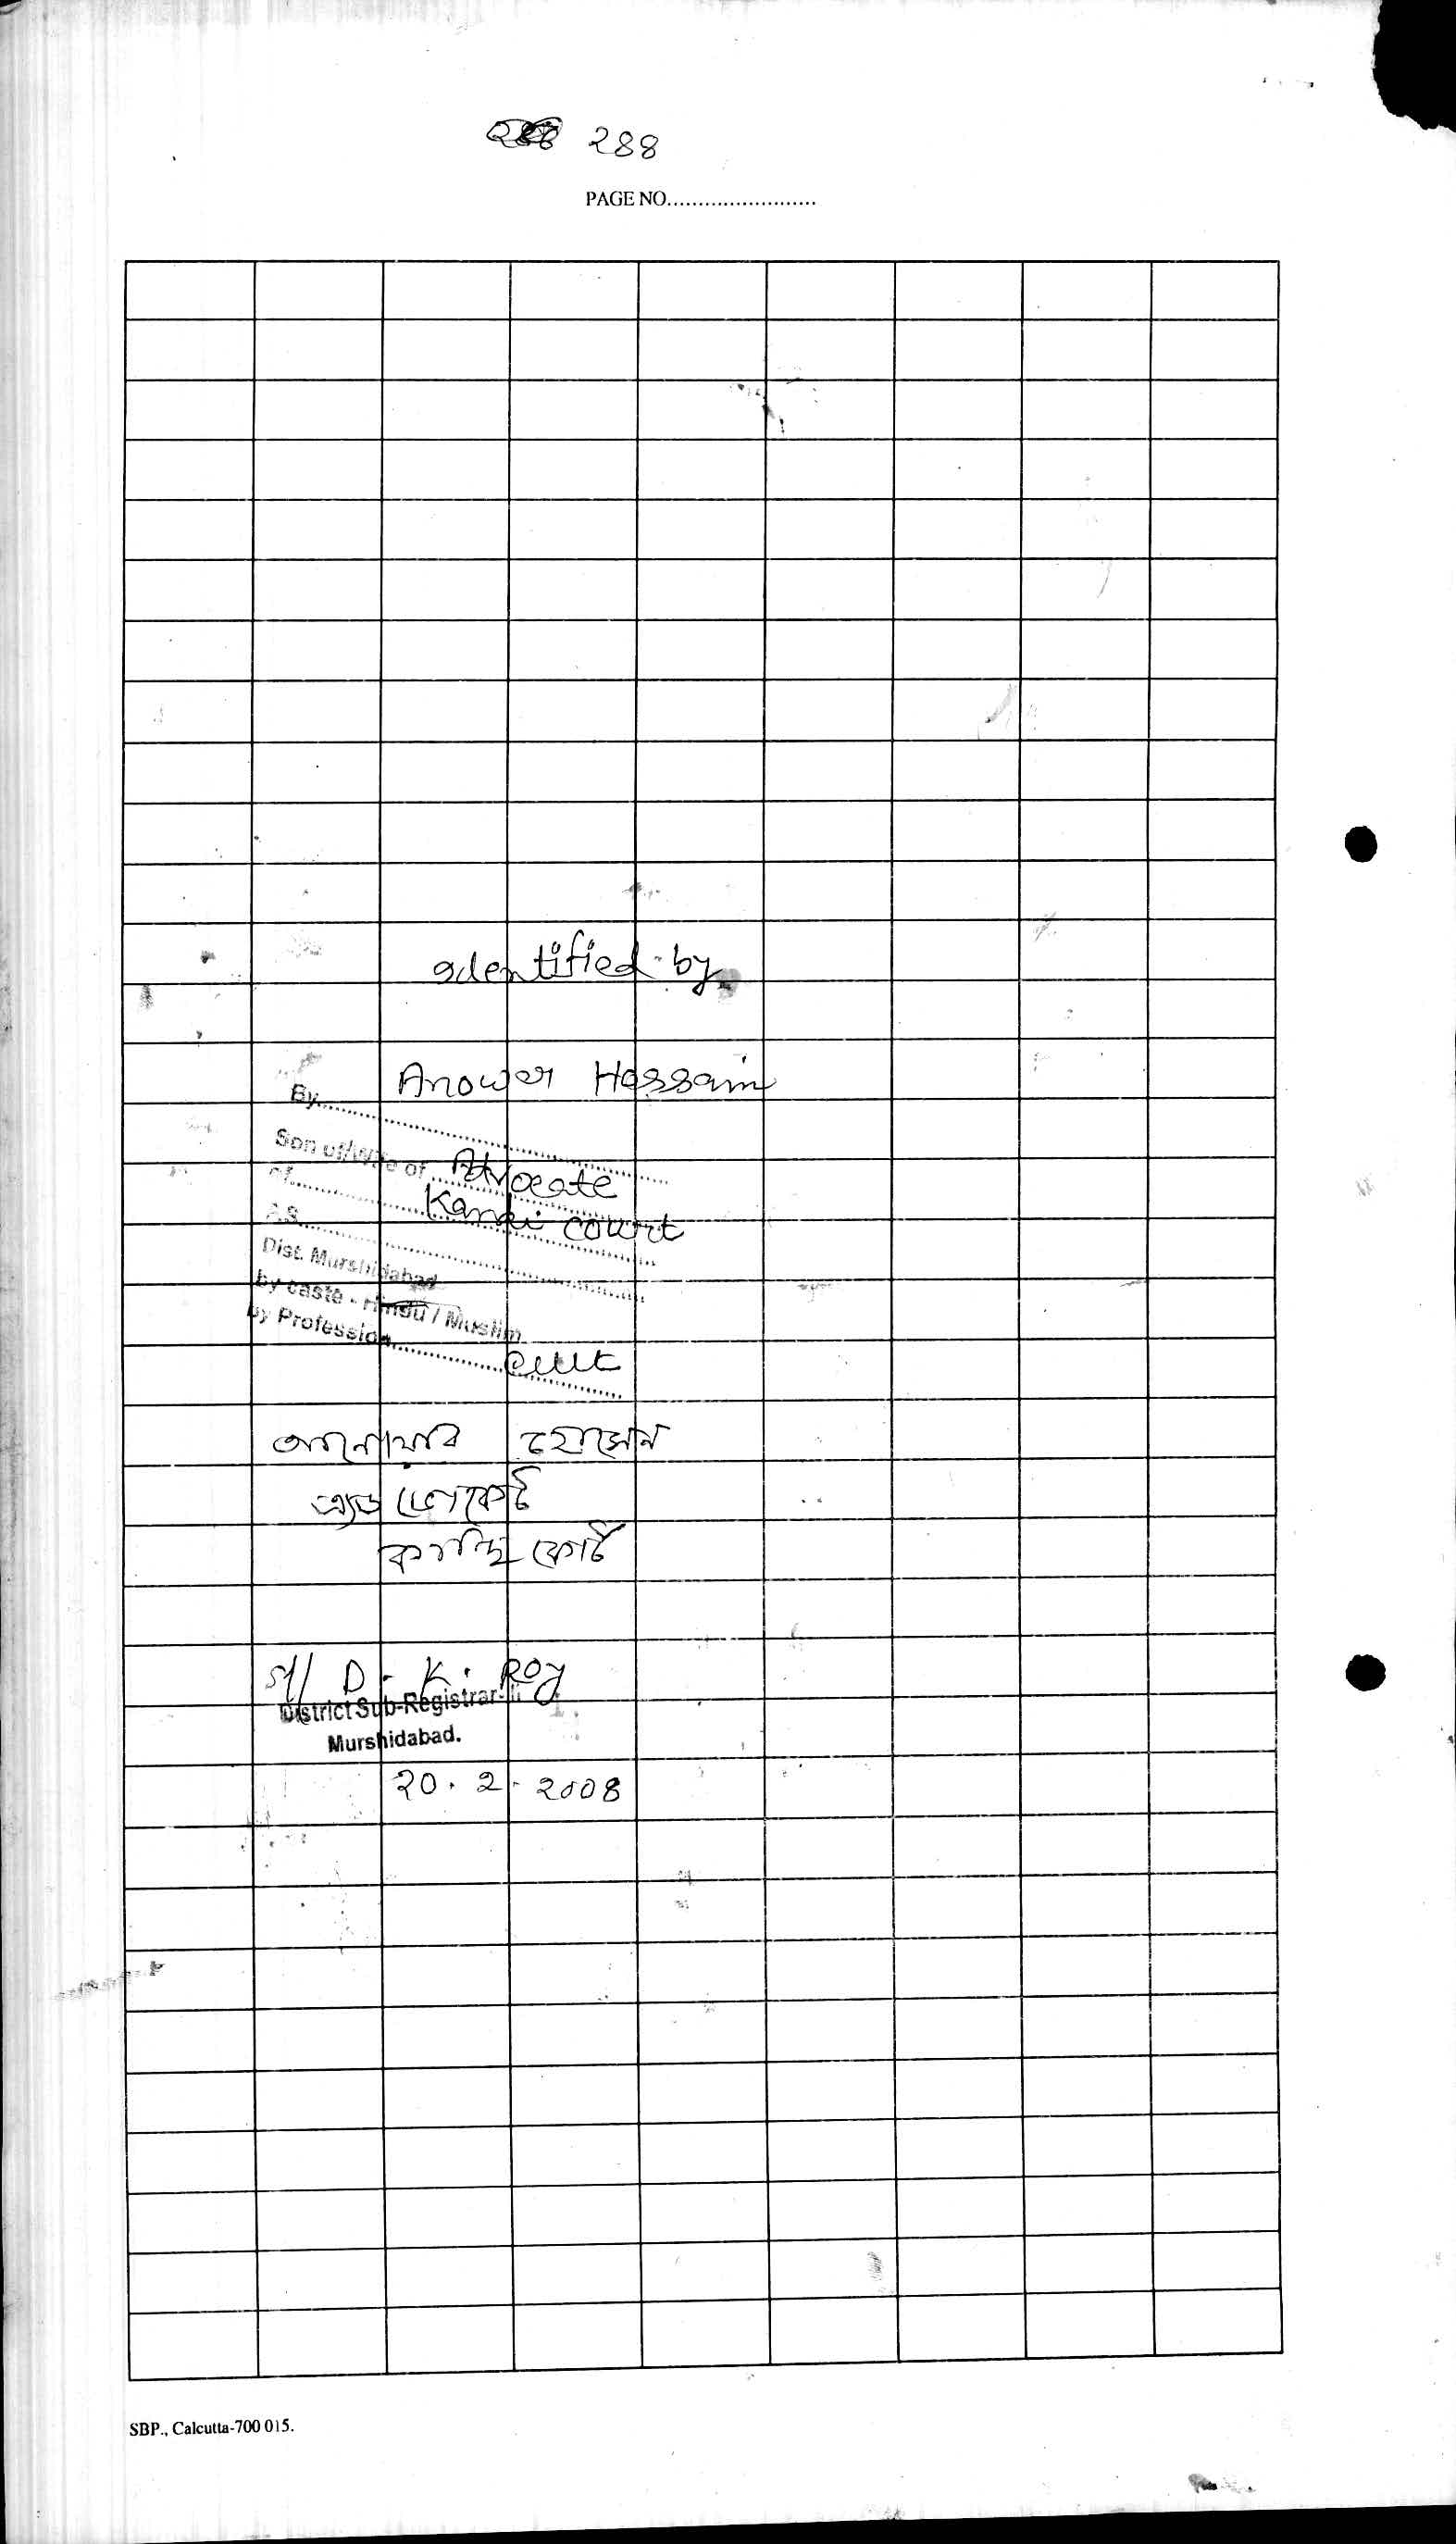 288
PAGE NO........................
Identified by
Anower Hossain
By..........
Son of/Wife of Advocate
of.......... Kandi court
P.S..........
Dist. Murshidabad
by caste - Hindu / Muslim
by Profession..........
আনোয়ার হোসেন
এ্যডভোকেট
কান্দি কোর্ট
Sd/ D. K. Roy
District Sub-Registrar-II
Murshidabad.
20.2.2008
SBP., Calcutta-700 015.